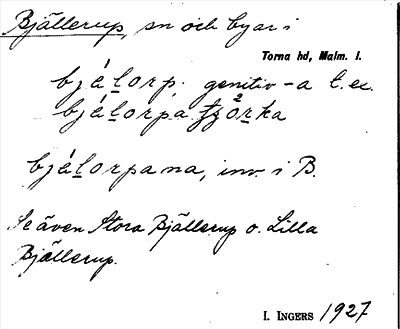 Bjällerup, sn och byar i
Torna hd, Malm. l.
bjálorp. genitiv -a t. ex.
bjálorpa
bjálorpana, inv. i B.
Se även Stora Bjällerup o. Lilla
Bjällerup.
I. INGERS 1927